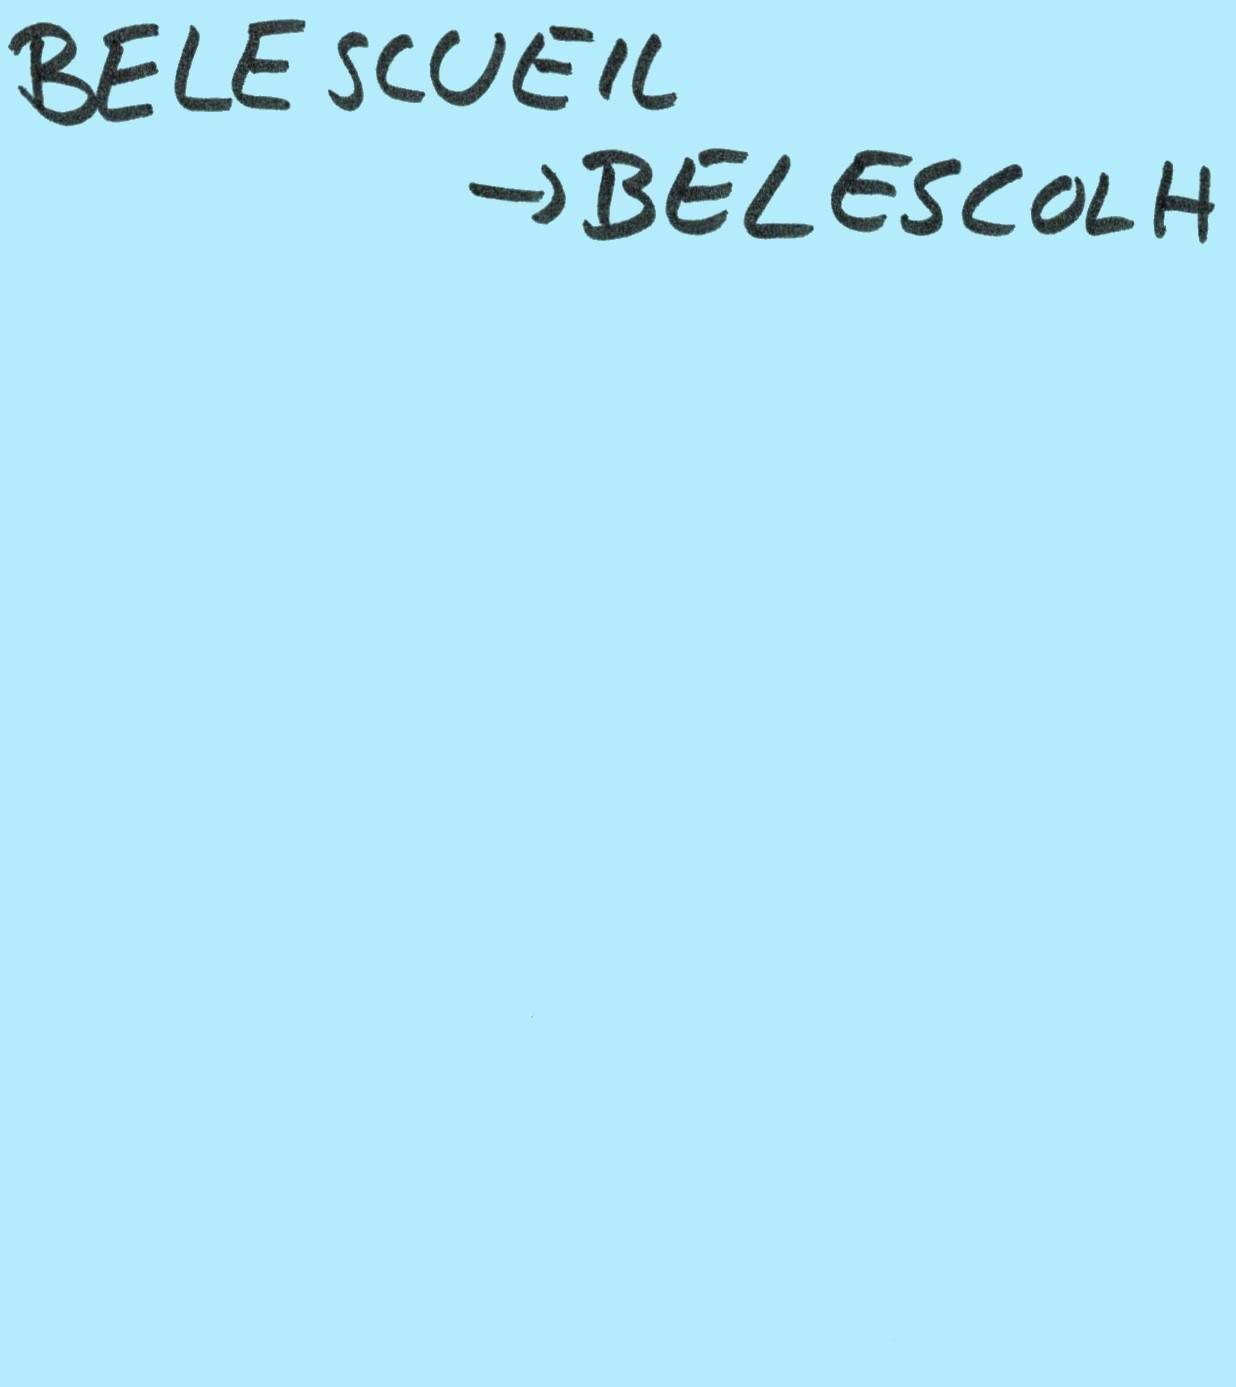 BELESCUEIL
→ BELESCOLH